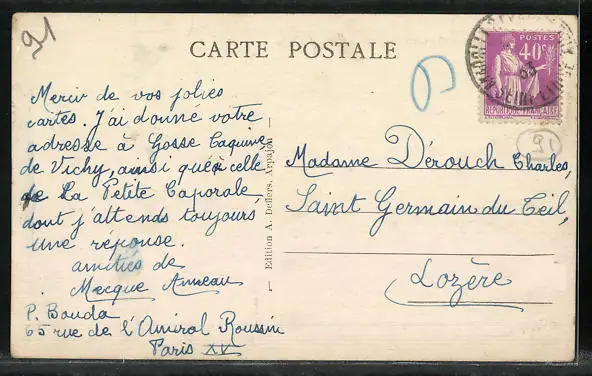 91
CARTE POSTALE
POSTES
40c
RÉPUBLIQUE FRANÇAISE
Merci de vos jolies
cartes. J'ai donné votre
adresse à Gosse Coquine
de Vichy, ainsi que celle
de La Petite Caporale
dont j'attends toujours
une réponse.
amitiés de
Mecque Anneau
P. Bouda
65 rue de l'Amiral Roussin
Paris XV
Edition A. Deflers, Arpajon
Madame Dérouch Charles,
Saint Germain du Teil,
Lozère